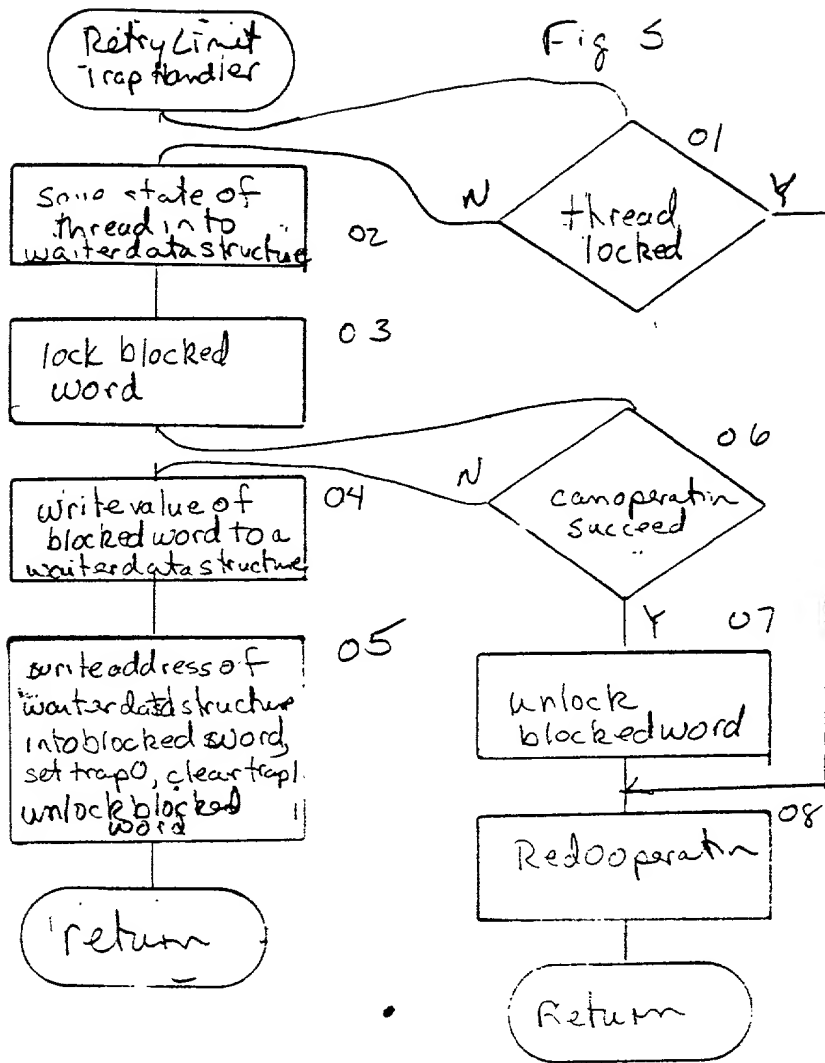 Fig 5
Retry Limit
Trap Handler
01
thread
locked
N
Y
02
save state of
thread into
waiter data structure
03
lock blocked
word
06
can operatin
succeed
N
Y
04
write value of
blocked word to a
waiter data structure
05
write address of
waiter data structure
into blocked word,
set trap0, clear trap1
unlock blocked
word
return
07
unlock
blocked word
08
Redo operatin
Return